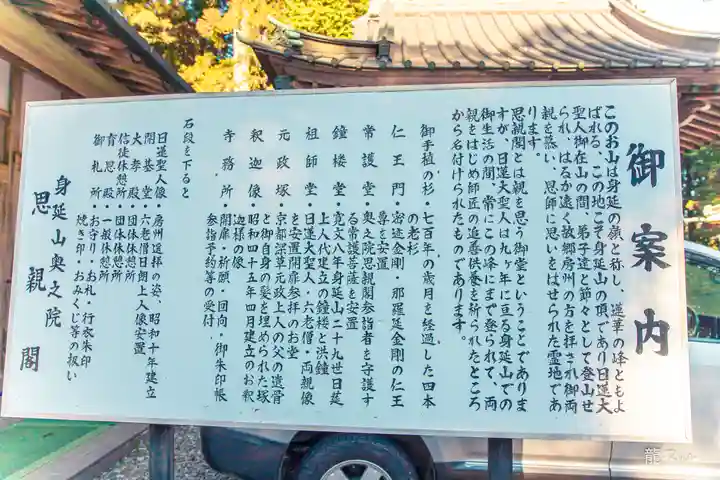 御案内
このお山は身延の嶺と称し、蓮華の峰ともよ
ばれる、この地こそ身延山の頂であり日蓮大
聖人御在山の間、弟子達と節々として登山せ
られ、はるか遠く故郷房州の方を拝され御両
親を慕い、恩師に思いをはせられた霊地であ
ります。
思親閣とは親を思う御堂ということでありま
すが、日蓮大聖人は九ヶ年に亘る身延山での
御生活の間、常にこの峰にまで登られて、両
親をはじめ師匠の追善供養を祈られたところ
から名付けられたものであります。
御手植の杉・七百年の歳月を経過した四本
の老杉
仁王門・密迹金剛・那羅延金剛の仁王
尊を安置
常護堂・奥之院思親閣参詣者を守護す
る常護菩薩を安置
鐘楼堂・寛文八年身延山二十九世日莚
上人代建立の鐘楼と洪鐘
祖師堂・日蓮大聖人・六老僧・両親像
を安置開扉参拝のお堂
元政塚・京都深草元政上人の父の遺骨
と御自身の髪を埋められた塚
釈迦像・昭和四十五年四月建立のお釈
迦様の像
寺務所・開扉・祈願・回向・御朱印帳
参詣予約等の受付
石段を下ると
日蓮聖人像・房州遥拝の姿、昭和十年建立
開基堂・六老僧日朗上人像安置
大孝殿・団体休憩所
信徒休憩所・団体休憩所
育恩殿・一般休憩所
御札所・お守り・お札・行衣朱印
焼き印・おみくじ等の扱い
身延山奥之院
思親閣